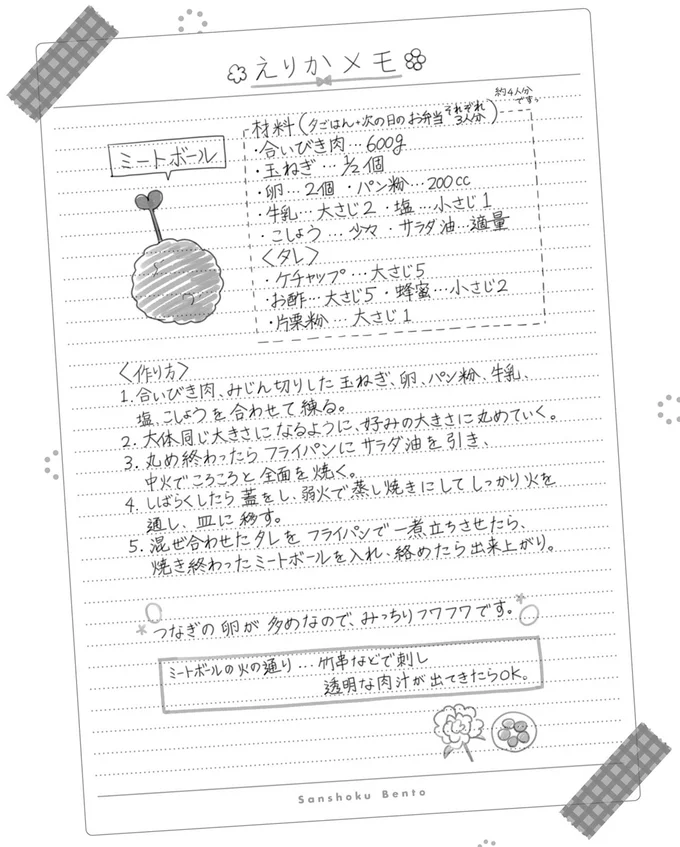 えりかメモ
約4人分
ですっ
材料(夕ごはん+次の日のお弁当 それぞれ3人分)
ミートボール
・合いびき肉…600g
・玉ねぎ…1/2個
・卵…2個 ・パン粉…200cc
・牛乳…大さじ2 ・塩…小さじ1
・こしょう…少々 ・サラダ油…適量
〈タレ〉
・ケチャップ…大さじ5
・お酢…大さじ5 ・蜂蜜…小さじ2
・片栗粉…大さじ1
〈作り方〉
1. 合いびき肉、みじん切りした玉ねぎ、卵、パン粉、牛乳、
塩、こしょうを合わせて練る。
2. 大体同じ大きさになるように、好みの大きさに丸めていく。
3. 丸め終わったらフライパンにサラダ油を引き、
中火でころころと全面を焼く。
4. しばらくしたら蓋をし、弱火で蒸し焼きにしてしっかり火を
通し、皿に移す。
5. 混ぜ合わせたタレをフライパンで一煮立ちさせたら、
焼き終わったミートボールを入れ、絡めたら出来上がり。
つなぎの卵が多めなので、みっちりフワフワです。
ミートボールの火の通り…竹串などで刺し
透明な肉汁が出てきたらOK。
Sanshoku Bento